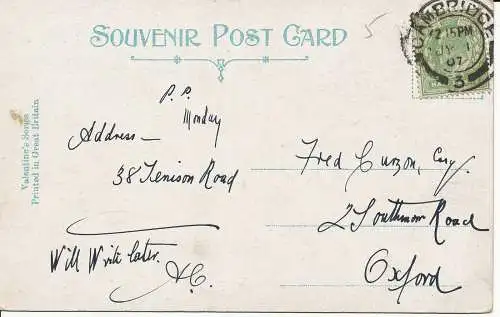 SOUVENIR POST CARD
5
CAMBRIDGE
2.15PM
JY 1
07
3
Valentine's Series
Printed in Great Britain
P.P.
Monday
Address –
38 Tenison Road
Will Write later.
A.C.
Fred Curzon, Esq.
2 Southmoor Road
Oxford